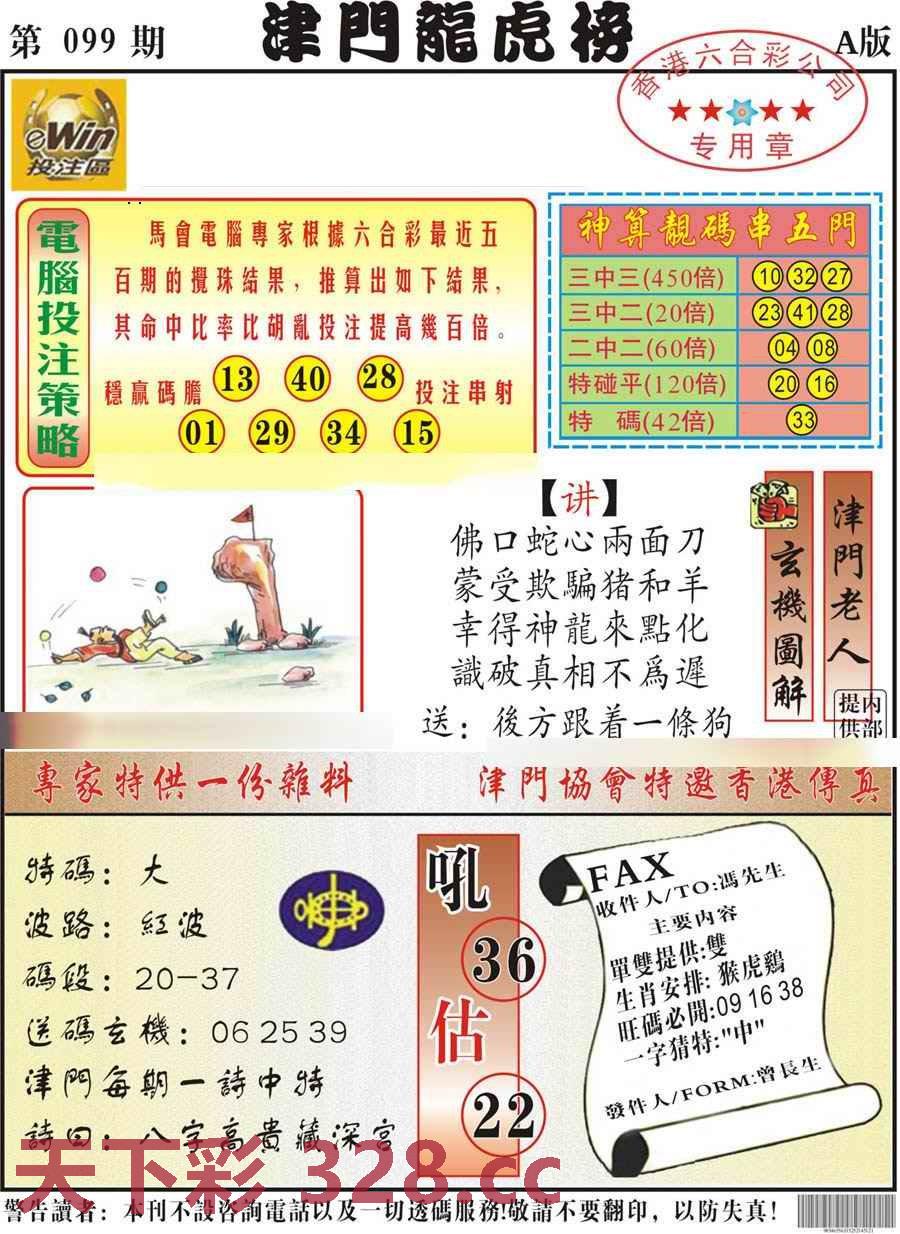 第 099 期
津門龍虎榜
A版
香港六合彩公司
专用章
eWin
投注區
電腦投注策略
馬會電腦專家根據六合彩最近五
百期的攪珠結果，推算出如下結果，
其命中比率比胡亂投注提高幾百倍。
穩贏碼膽 13 40 28 投注串射
01 29 34 15
神算靚碼串五門
三中三(450倍) 10 32 27
三中二(20倍) 23 41 28
二中二(60倍) 04 08
特碰平(120倍) 20 16
特 碼(42倍) 33
【讲】
佛口蛇心兩面刀
蒙受欺騙猪和羊
幸得神龍來點化
識破真相不爲遲
送：後方跟着一條狗
玄機圖解
津門老人
内部提供
專家特供一份雜料
津門協會特邀香港傳真
特碼：大
波路：紅波
碼段：20-37
送碼玄機：06 25 39
津門每期一詩中特
詩曰：八字高貴藏深宮
吼
36
估
22
FAX
收件人/TO:馮先生
主要内容
單雙提供:雙
生肖安排: 猴虎鷄
旺碼必開:09 16 38
一字猜特:"中"
發件人/FORM:曾長生
天下彩 328.cc
警告讀者：本刊不設咨詢電話以及一切透碼服務!敬請不要翻印，以防失真！